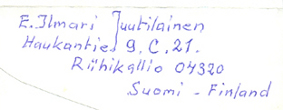 E. Ilmari Juutilainen
Haukantie 9. C. 21.
Riihikallio 04320
Suomi - Finland